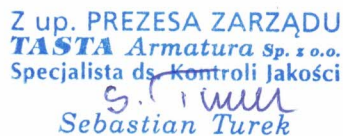 Z up. PREZESA ZARZĄDU
TASTA Armatura Sp. z o.o.
Specjalista ds. Kontroli Jakości
S. Turek
Sebastian Turek